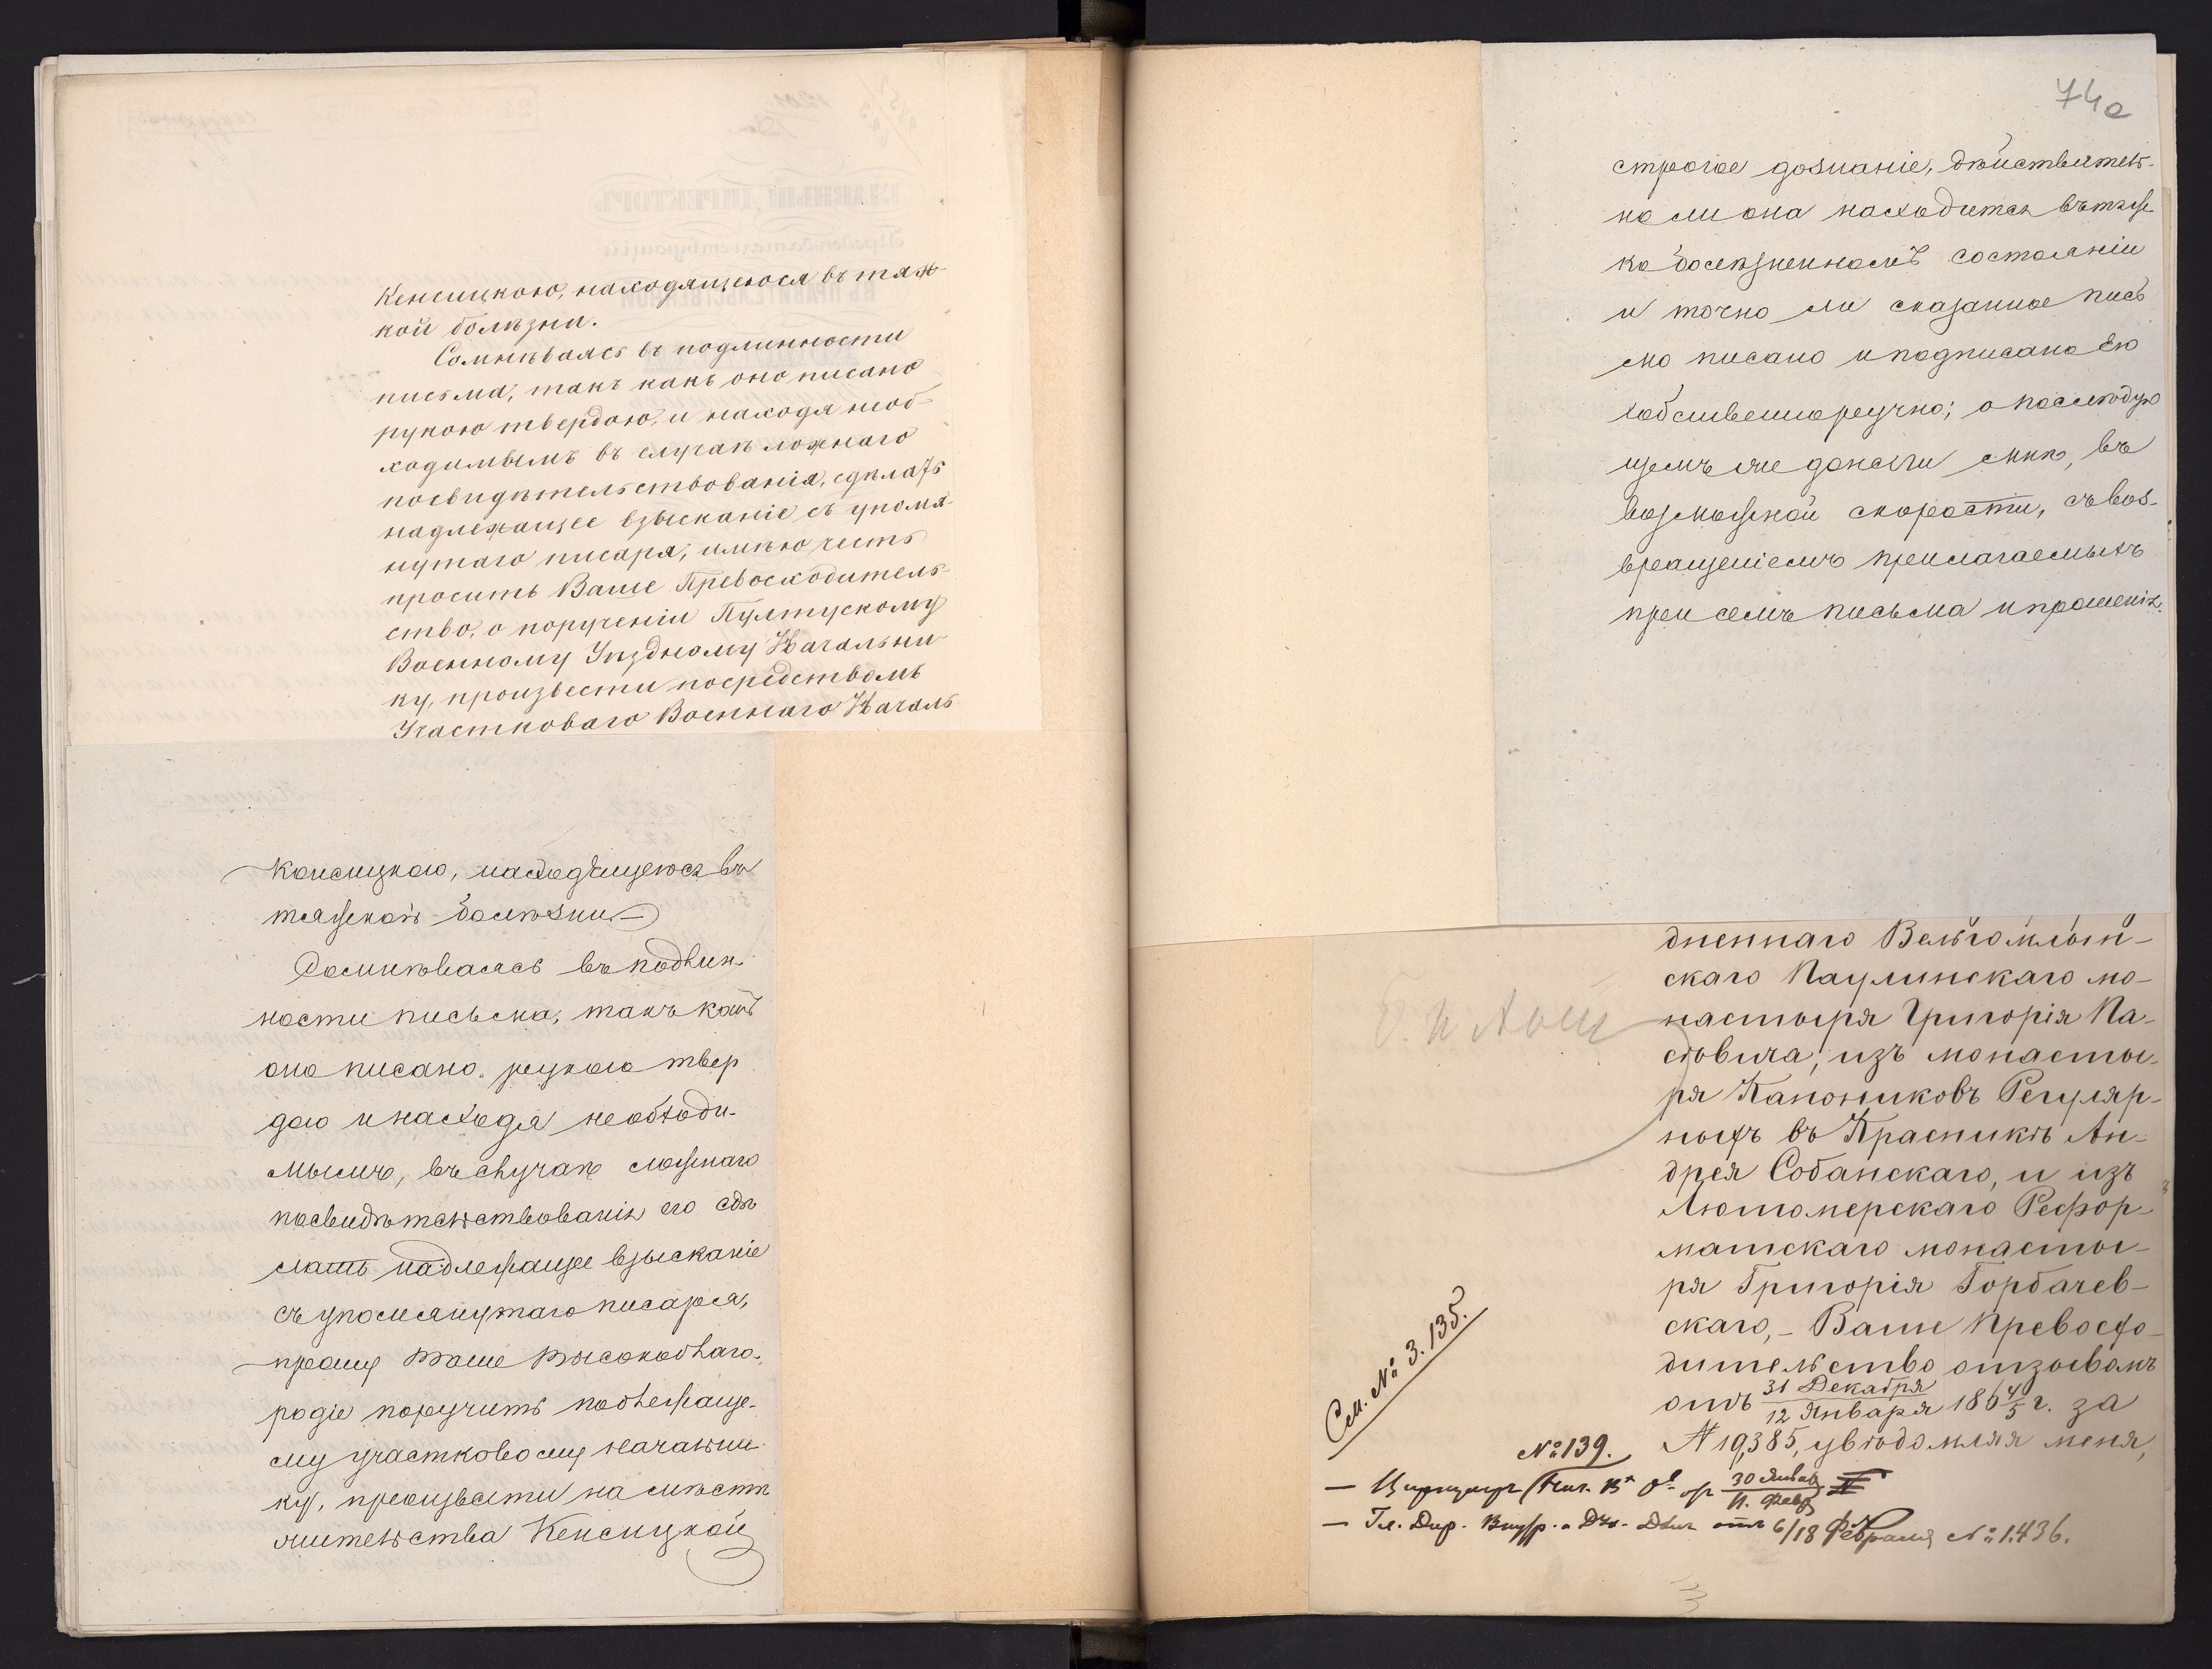 Кенсицкою, находящеюся въ тяж-
кой болѣзни.
Сомнѣваясь въ подлинности
письма, такъ какъ оно писано
рукою твердою, и находя необ-
ходимымъ въ случаѣ ложнаго
посвидѣтельствованія, сдѣлать
надлежащее взысканіе съ упомя-
нутаго писаря, имѣю честь
просить Ваше Превосходитель-
ство, о порученіи Пултускому
Военному Уѣздному Начальни-
ку, произвести посредствомъ
Участковаго Военнаго Началь
Кенсицкою, находящеюся въ
тяжкой болѣзни
Сомнѣваясь въ подлин
ности письма, такъ какъ
оно писано рукою твер
дою и находя необходи-
мымъ, въ случаѣ ложнаго
посвидѣтельствованія его сдѣ
лать надлежащее взысканіе
съ упомянутаго писаря,
прошу Ваше Высокоблаго-
родіе поручить подлежаще-
му участковому начальни
ку, произвести на мѣстѣ
жительства Кенсицкой
74а
строгое дознаніе, дѣйствитель-
но ли она находится въ тяж
ко болѣзненномъ состояніи
и точно ли сказанное пись
мо писано и подписано Ею
собственноручно; о послѣдую
щемъ же донести мнѣ, въ
возможной скорости, съ воз-
вращеніемъ прилагаемыхъ
при семъ письма и прошенія.
дненнаго Вельгомлын-
скаго Паулинскаго мо-
настыря Григорія Па-
совича, изъ монасты-
ря Канониковъ Регуляр-
ныхъ въ Красникѣ Ан-
дрея Собанскаго, и изъ
Лютомерскаго Рефор-
матскаго монасты-
ря Григорія Горбачев-
скаго, - Ваше Превосхо-
дительство отзывомъ
отъ 31 Декабря / 12 Января 186 4/5 г. за
№ 19,385, увѣдомляя меня,
См. № 3.135.
№ 139.
30 Январ / 11 Февр
— Гл. Дир. Внутр. и Дух. Дѣлъ отъ 6/18 Февраля № 1.436.